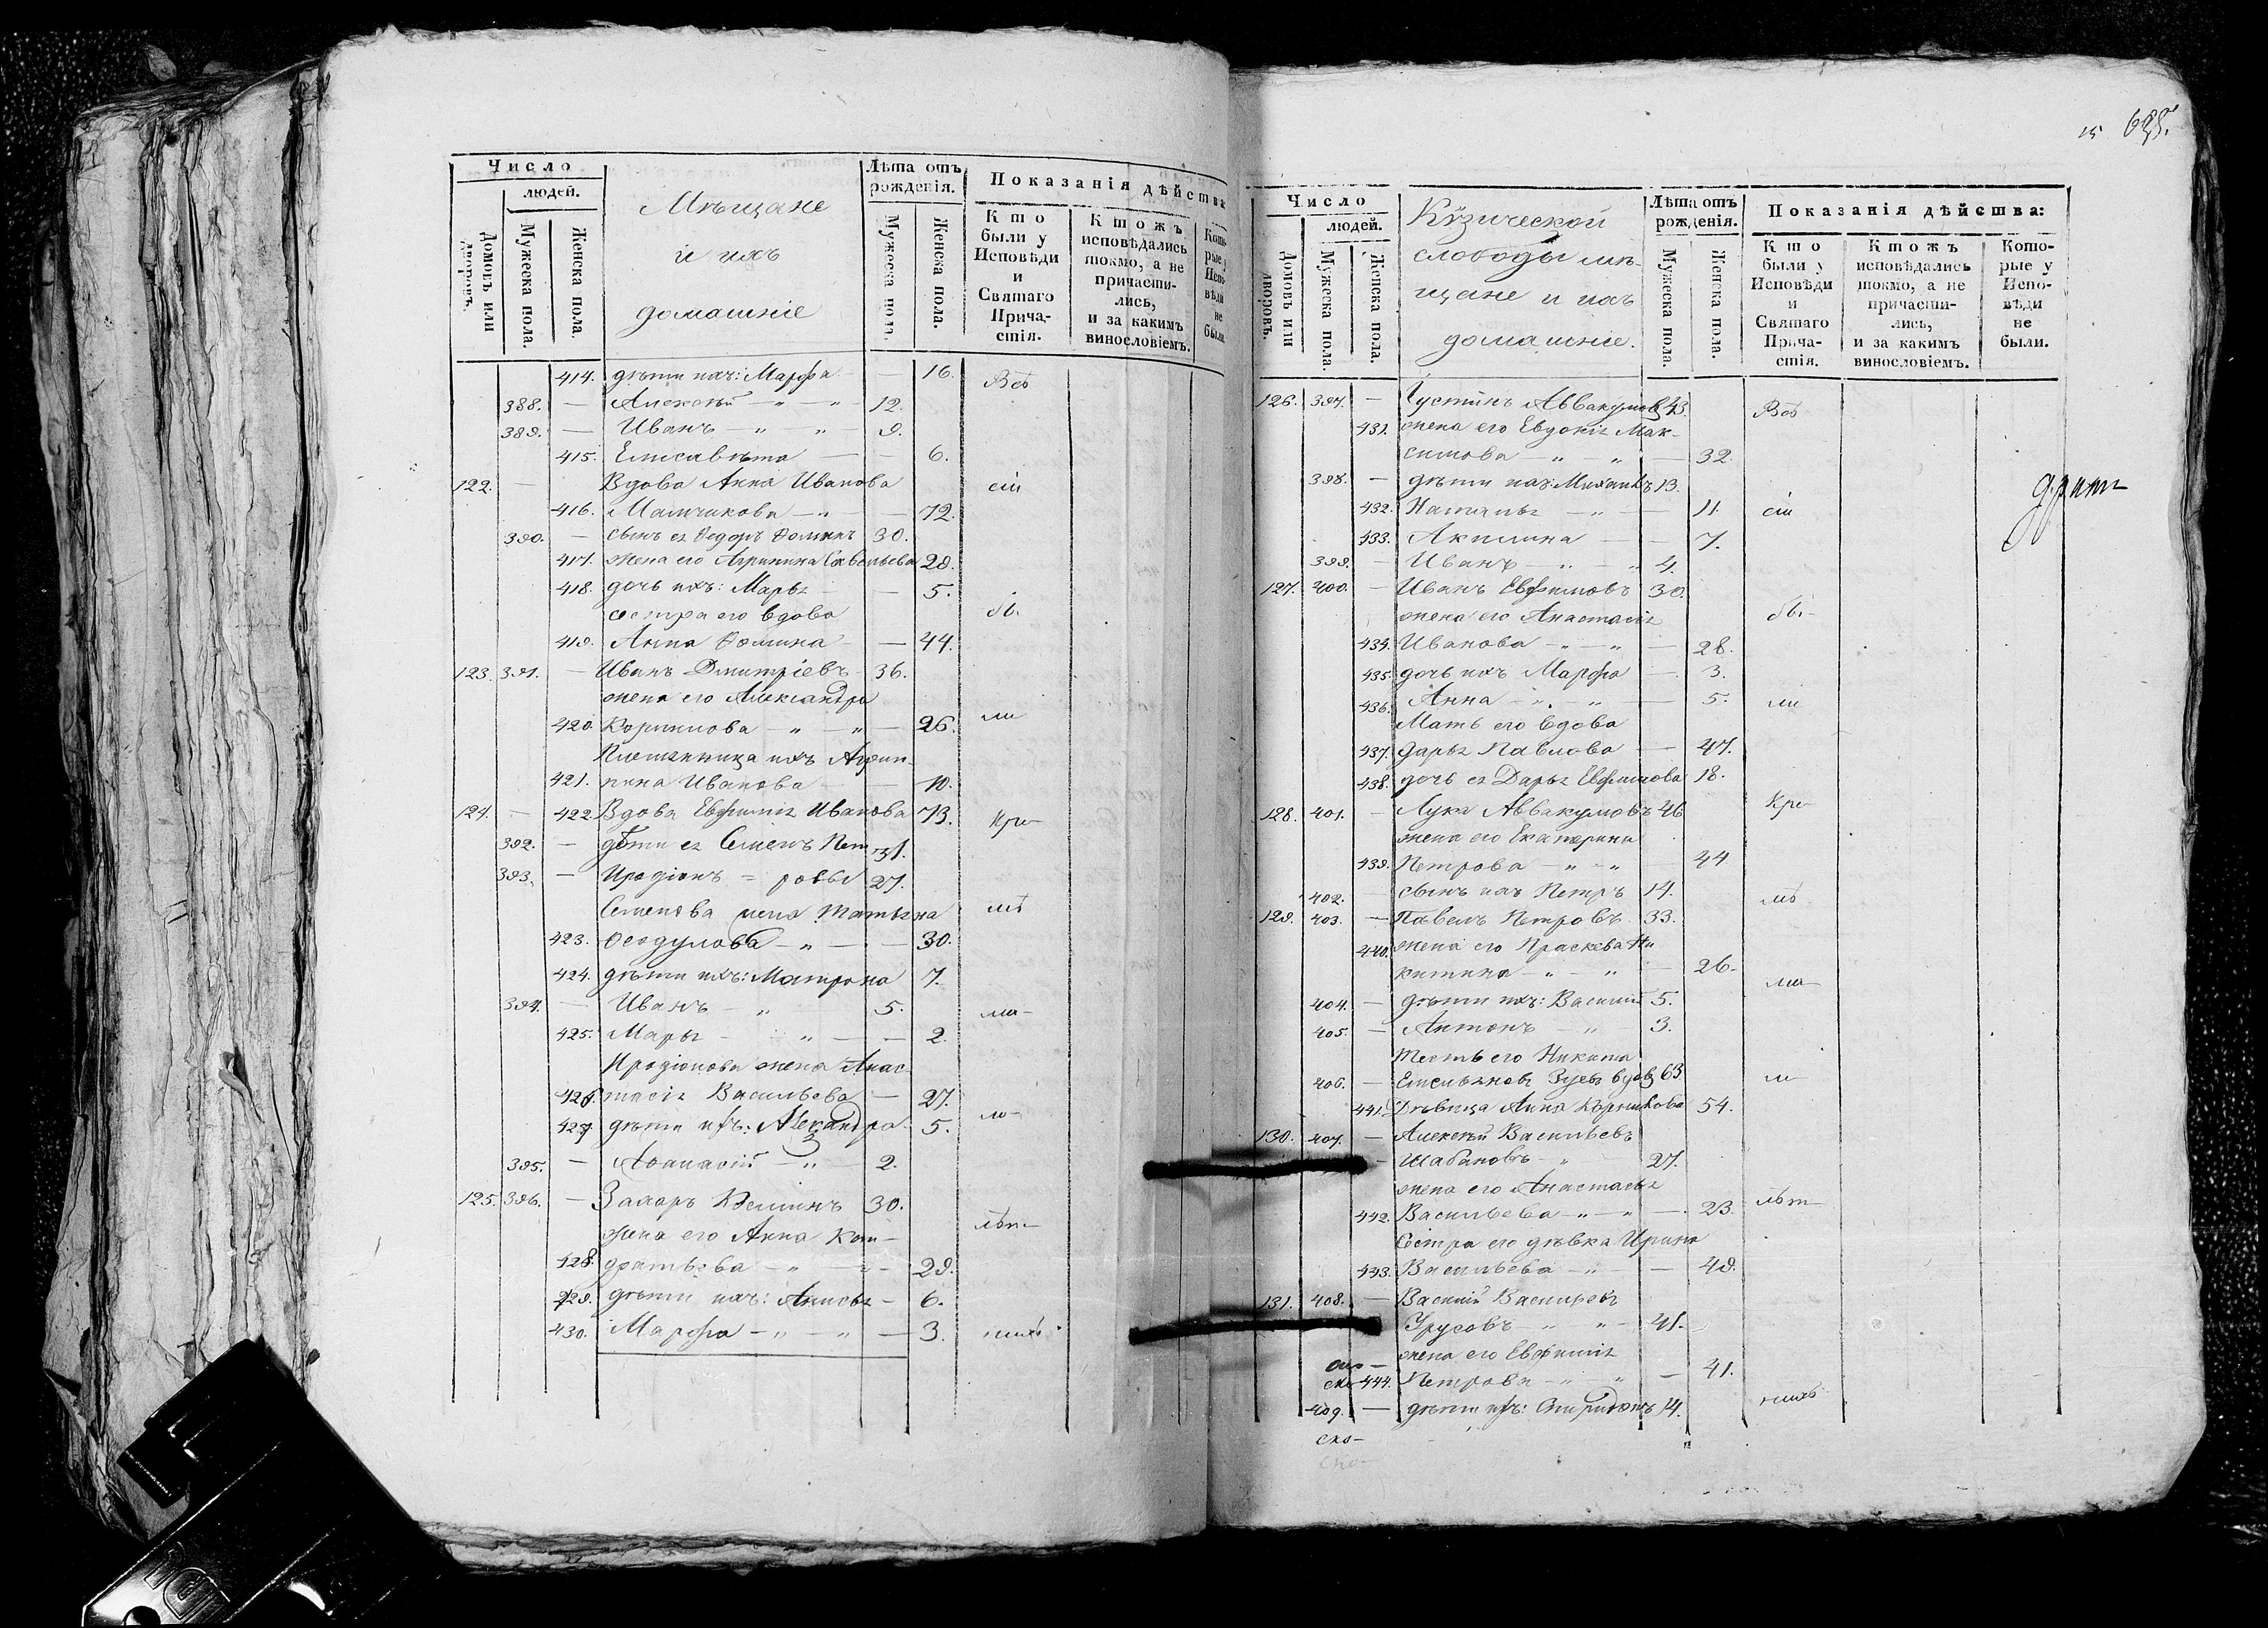 Число
людей.
Домовъ или дворовъ.
Мужеска пола.
Женска пола.
Мѣщане
и ихъ
домашніе
Лѣта отъ
рожденія.
Мужеска пола.
Женска пола.
Показанія дѣйства
Кто
были у
Исповѣди
и
Святаго
Прича-
стія.
Ктожъ
исповѣдались
токмо, а не
причасти-
лись,
и за какимъ
винословіемъ.
Кото-
рые у
Испо-
вѣди
не
были.
414. дѣти ихъ: Марфа — 16. Всѣ
388. — Алексѣй — „ — „ — 12.
389. — Иванъ — „ — „ — 9.
415. Елисавѣта — — 6.
122. — Вдова Анна Иванова сіи
416. — „ — — 72.
390. — сынъ ея Ѳедоръ Ѳоминъ 30.
417. жена его Агрипина Савельева 29.
418. дочь ихъ: Марья — — 5.
сестра его вдова бы-
419. Анна Ѳомина — — 44.
123. 391. — Иванъ Дмитріевъ — 36.
жена его Александра
420. Корнилова — „ — „ — 26. ли
Племянница ихъ Агрип-
421. пина Иванова — — 10.
124. — 422. Вдова Евфимія Иванова 73. Кро-
392. — дѣти ея Семенъ Пет 31.
393. — Иродіонъ = ровы 27.
Семенова жена Татьяна мѣ
423. Ѳеодулова — „ — — 30.
424. дѣти ихъ: Матрона 7.
394. — Иванъ — „ 5. ма-
425. Марья — „ — — 2.
Иродіонова жена Анас-
426. тасія Васильева — 27.
427. дѣти ихъ: Александра — 5. ло-
395. — Аѳанасій — „ — 2.
125. 396. — Захаръ 30.
жена его Анна Кон- лѣт-
428. дратьева — „ — „ — 29.
429. дѣти ихъ: — 6.
430. Марфа — „ — „ — 3. нихъ
15
Число
людей.
Домовъ или дворовъ.
Мужеска пола.
Женска пола.
Кузической
слободы мѣ-
щане и ихъ
домашніе.
Лѣта отъ
рожденія.
Мужеска пола.
Женска пола.
Показанія дѣйства:
Кто
были у
Исповѣди
и
Святаго
Прича-
стія.
Ктожъ
исповѣдались
токмо, а не
причасти-
лись,
и за какимъ
винословіемъ.
Кото-
рые у
Испо-
вѣди
не
были.
126. 397. — Густинъ Аввакумовъ 43. Всѣ
431. жена его Евдокія Мак-
симова — „ — „ — 32.
398. — дѣти ихъ: Михаилъ 13.
432. Наталья — „ — 11. сіи
433. Акилина — — 7.
399. — Иванъ — „ — „ 4.
127. 400. — Иванъ Евфимовъ 30.
жена его Анастасія бы-
434. Иванова — „ — „ — 28.
435. дочь ихъ Марфа — 3.
436. Анна — „ — „ — 5. ли
Мать его вдова
437. Дарья Павлова — 47.
438. дочь ея Дарья Евфимова 18.
128. 401. — Лука Аввакумовъ 46 Кро-
жена его Екатерина
439. Петрова — „ — „ — 44
402. сынъ ихъ Петръ 14. мѣ
129. 403. — Павелъ Петровъ 33.
440. жена его Праскева Ни
китина — „ — „ — 26. ма-
404. — дѣти ихъ: Василій 5.
405. — Антонъ — „ — 3.
тесть его Никита
406. — Емельяновъ вдов 63. ло-
441. Дѣвица Анна 54.
130. 407. — Алексѣй Васильевъ
Шабановъ — „ — 27.
жена его Анастасья
442. Васильева — „ — „ — 23. лѣт-
Сестра его дѣвка Ирина
443. Васильева — „ — 49.
131. 408. — Василій Васильевъ
Урусовъ — „ — „ — 41.
жена его Евфимія
444. Петрова — „ — „ — 41.
409. — дѣти ихъ: Спиридонъ 14. нихъ